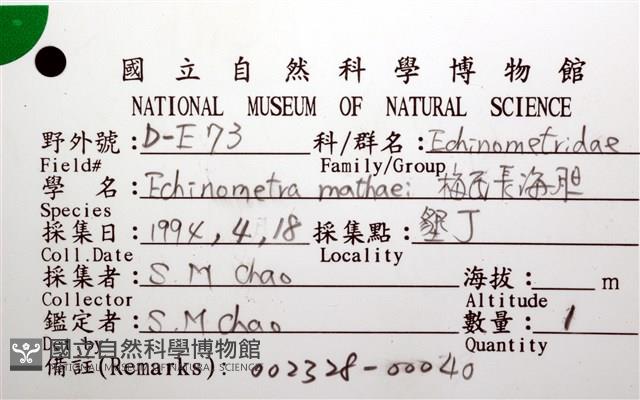 國立自然科學博物館
NATIONAL MUSEUM OF NATURAL SCIENCE
野外號：D-E73 科/群名：Echinometridae
Field# Family/Group
學 名：Echinometra mathaei 梅氏長海胆
Species
採集日：1994, 4, 18 採集點：墾丁
Coll.Date Locality
採集者：S.M Chao 海拔： m
Collector Altitude
鑑定者：S.M Chao 數量：1
Det by Quantity
國立自然科學博物館
NATIONAL MUSEUM OF NATURAL SCIENCE
備註(Remarks)：002328-00040